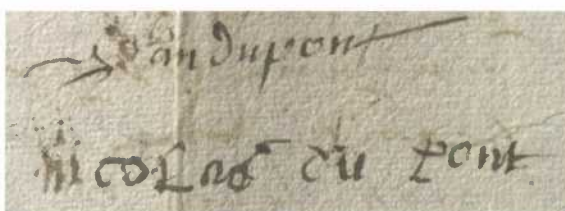 Jan dupont
nicolas du pont